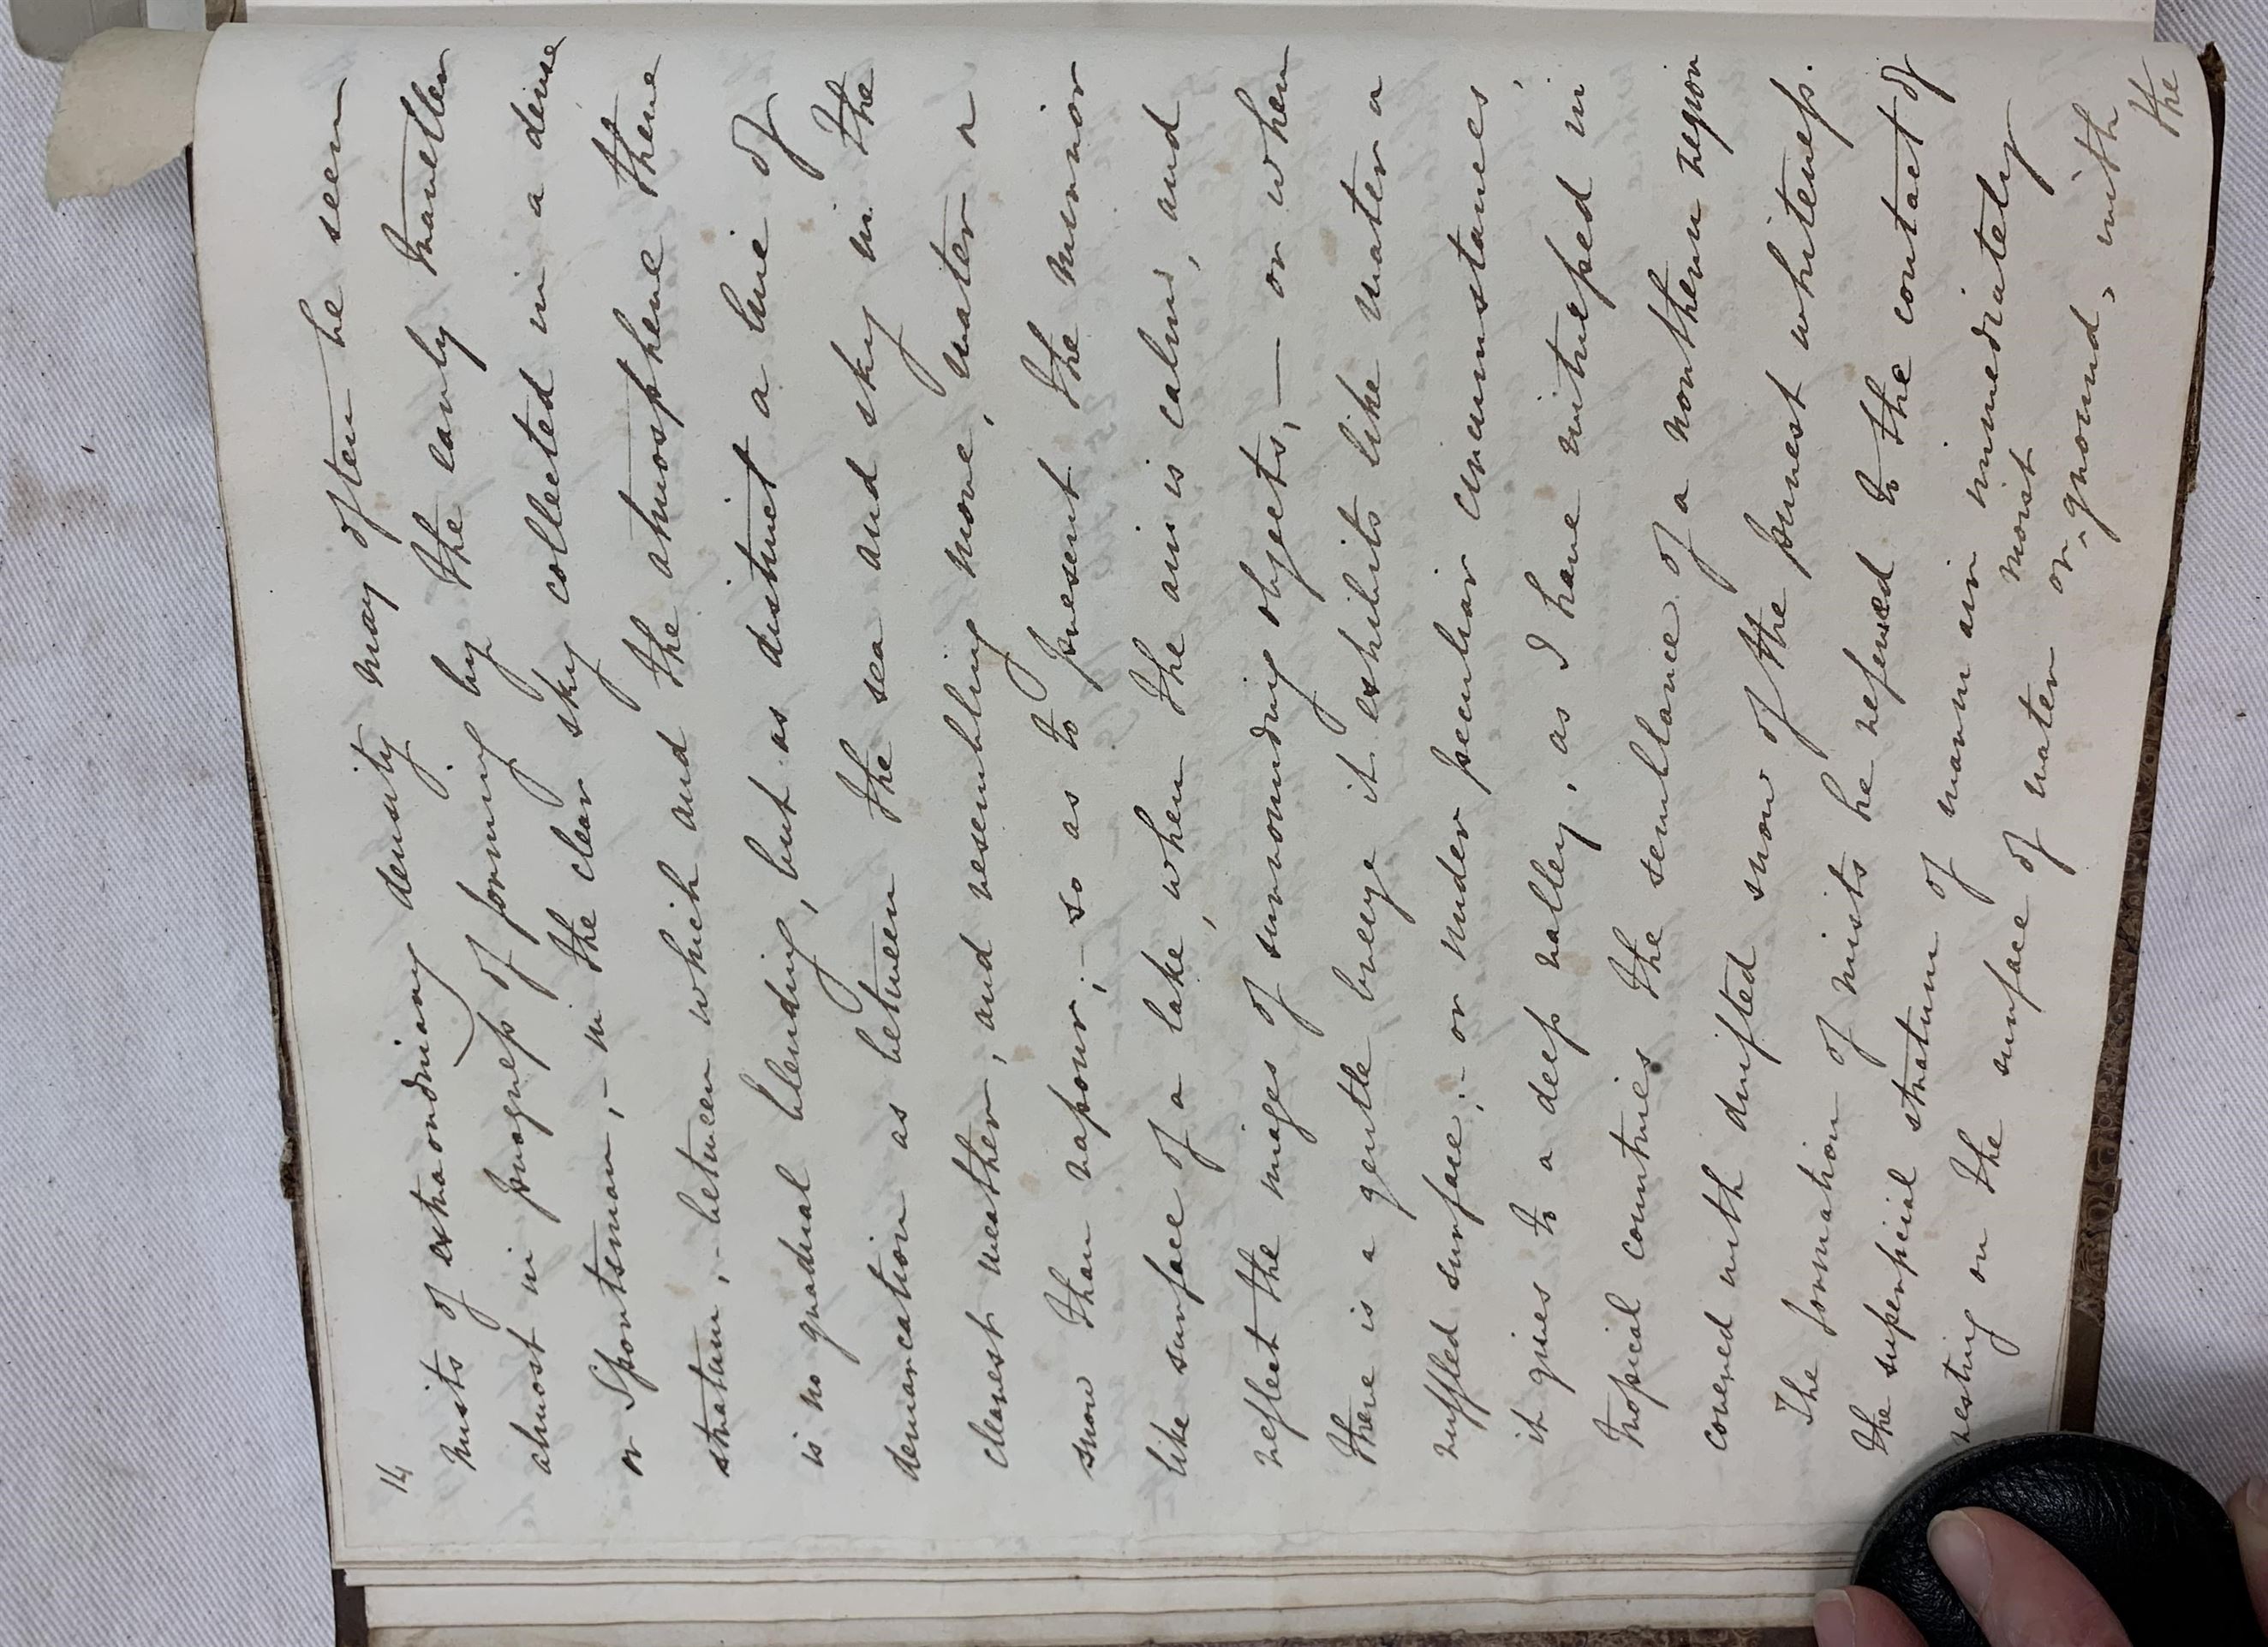 14
mists of extraordinary density may often be seen
almost in progress of forming by the early traveller
or Sportsman,- in the clear sky collected in a dense
stratum,- between which and the atmosphere there
is no gradual blending, but as distinct a line of
demarcation as between the sea and sky in the
clearest weather, and resembling more, water or
snow than vapour;- so as to present the mirror
like surface of a lake, when the air is calm, and
reflect the images of surrounding objects,- or when
there is a gentle breeze it exhibits like water a
ruffled surface;- or under peculiar circumstances,
it gives to a deep valley, as I have witnessed in
tropical countries the semblance of a northern region
covered with drifted snow of the purest whiteness.
The formation of mists he referred to the contact of
the superficial stratum of warm air immediately
resting on the surface of water or ^ moist ground, with
the